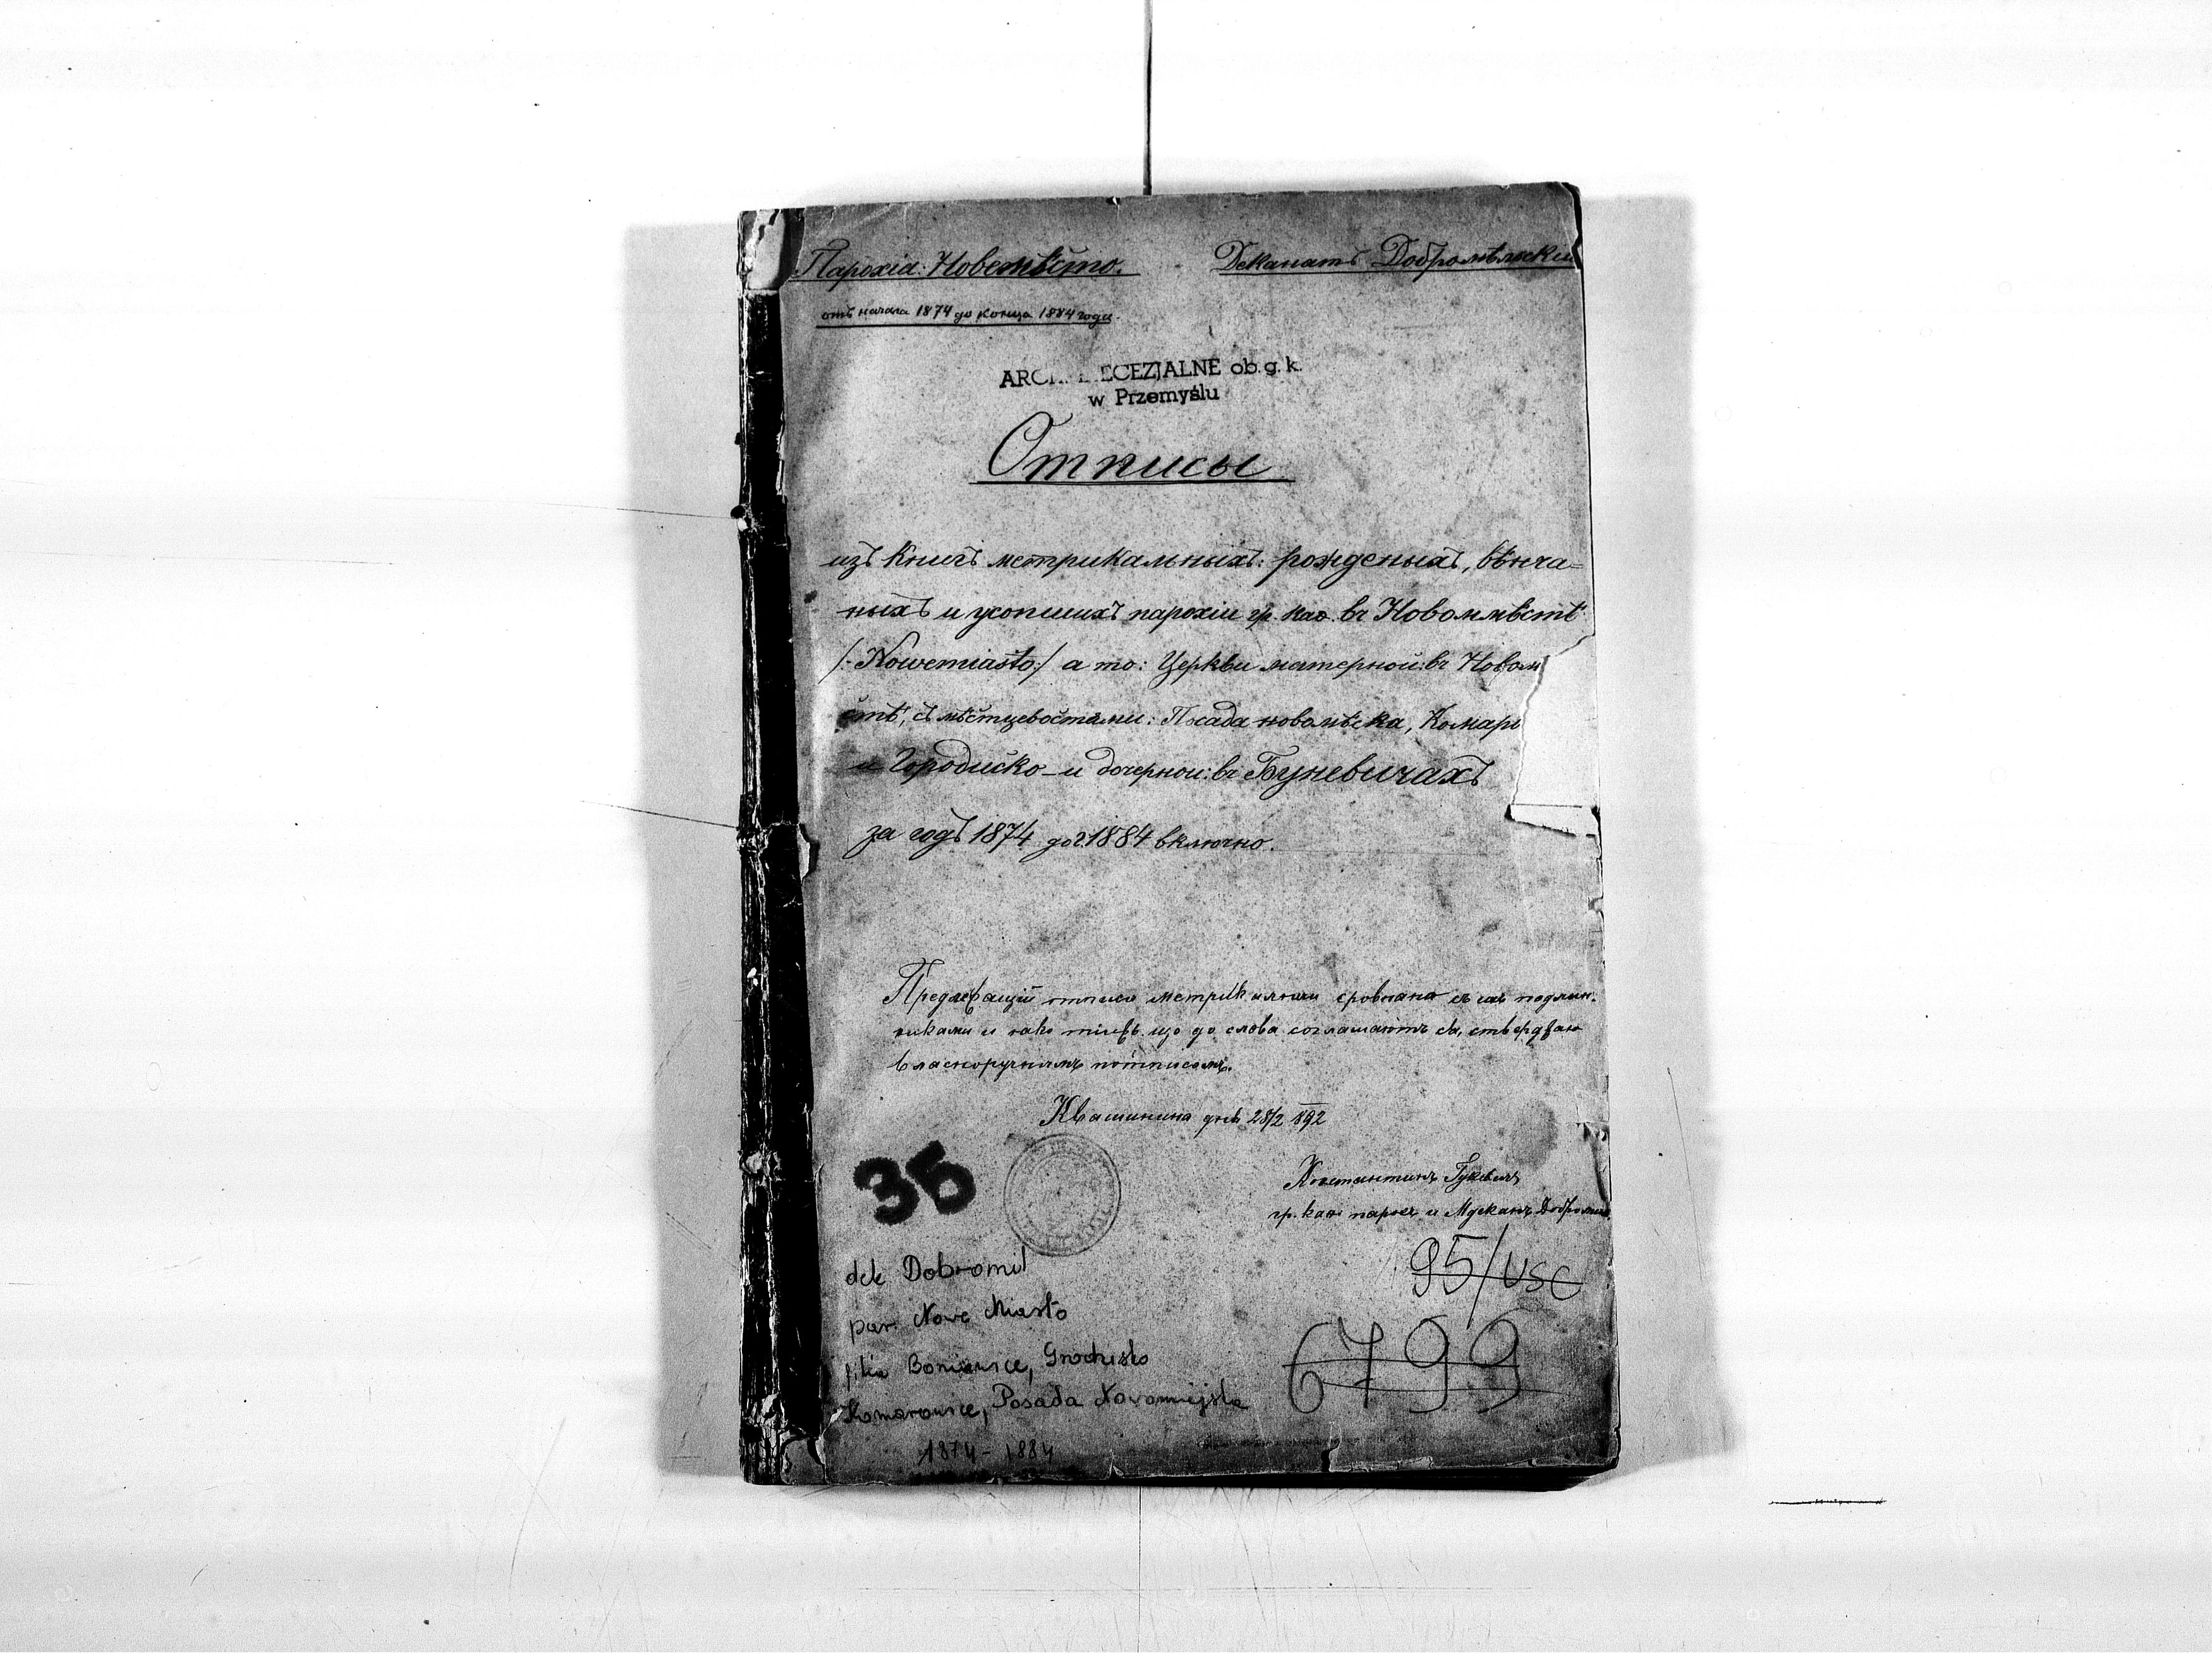 Парохіа: Новемѣсто. Деканатъ Добромѣльскій
отъ начала 1874 до конца 1884 года.
ARCH. ECEZJALNE ob. g. k.
w Przemyślu
Отписы
изъ книгъ метрикальныхъ: рожденыхъ, вѣнча=
ныхъ и усопшихъ парохіи гр. каѳ. въ Новоммѣстѣ
/:Nowemiasto:/ а то: Церкви матерной: въ Новом
стѣ, съ мѣстцевостями: Посада новомѣска, Комаро
и Городиско – и дочерной: въ Буневичахъ
за годъ 1874 до г. 1884 включно.
отписи сровнана съ подлин-
никами и що до слова соглашаютъ ся, ствердѣаю
власноручнымъ потписомъ.
Квашинина днѣ 28/2 892
Константинъ
гр. каѳ. парох и Мдеканъ Добромил
35
95/USC
6799
dek Dobromil
par. Nowe Miasto
filia Boniowice, Grodzisko
Komarowice, Posada Nowomiejska
1874 - 1884